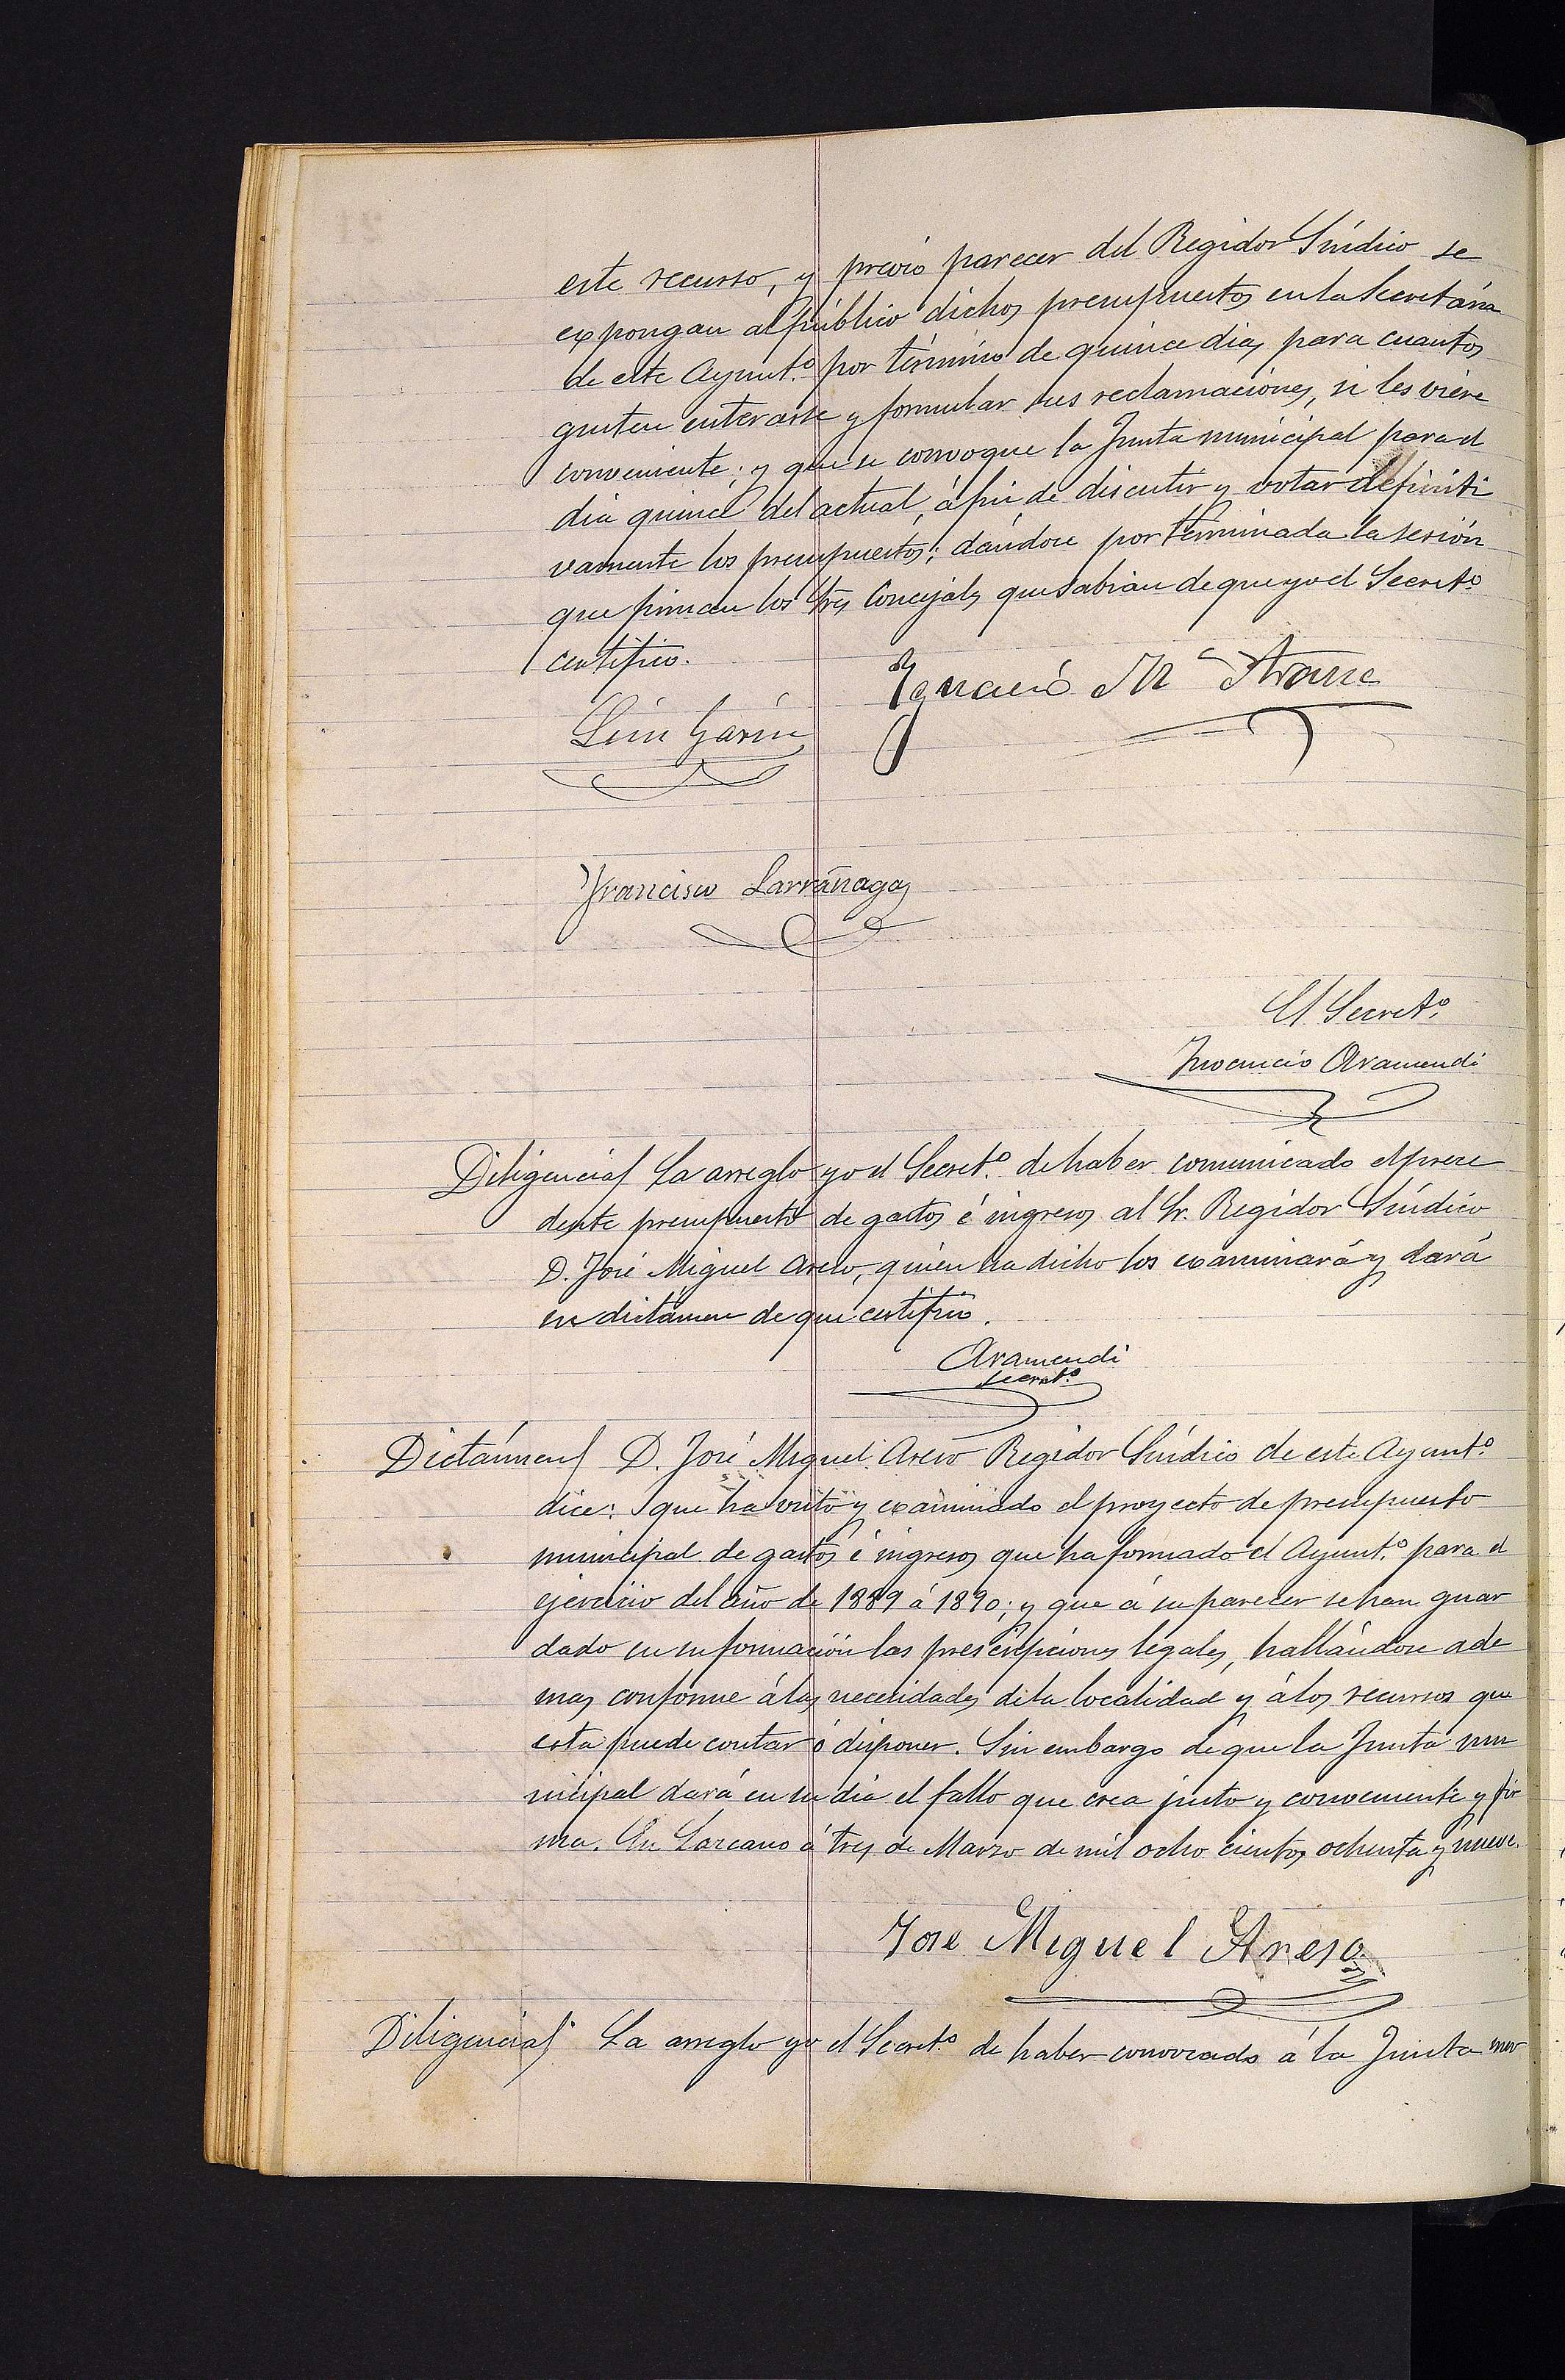 este recurso, y previo parecer del Regidor Síndico se
expongan al público dichos presupuestos en la Secretária
de este Ayunt.º por término de quince dias para cuantos
gusten enterarse y formular sus reclamaciones, si les viere
conveniente; y que se convoque la Junta municipal para el
dia quince del actual, á fin de discutir y votar definiti
vamente los presupuestos; dándose por terminada la sesión
que firman los Sres Concejales que sabian de que yo el Secretº
certifico.
Ignacio Mª Arana
Lino Garin
Francisco Larrañaga
El Secretº,
Inocencio Aramendi
Diligencia La arreglo yo el Secret.º de haber comunicado el prece
dente presupuesto de gastos é ingresos al Sr. Regidor Síndico
D. José Miguel Areso, quien ha dicho los examinará y dará
su dictámen de que certifico.
Aramendi
Secret.º
Dictámen D. José Miguel Areso Regidor Síndico de este Ayunt.º
dice: que ha visto y examinado el proyecto de presupuesto
municipal de gastos é ingresos que ha formado el Ayunt.º para el
ejercicio del año de 1889 á 1890; y que á su parecer se han guar
dado en su formación las prescripciones legales, hallándose ade
mas conforme á las necesidades de la localidad y á los recursos que
esta puede contar ó disponer. Sin embargo de que la Junta mu
nicipal dará en su dia el fallo que crea justo y conveniente y fir
ma. En Lazcano á tres de Marzo de mil ocho cientos ochenta y nueve.
Jose Miguel Areso
Diligencia La arreglo yo el Secret.º de haber convocado á la Junta mu